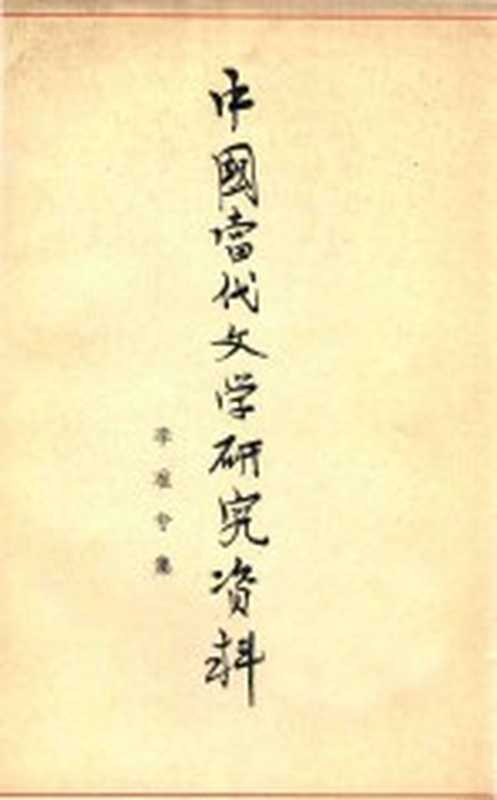 中國當代文学研究资料
李准专集